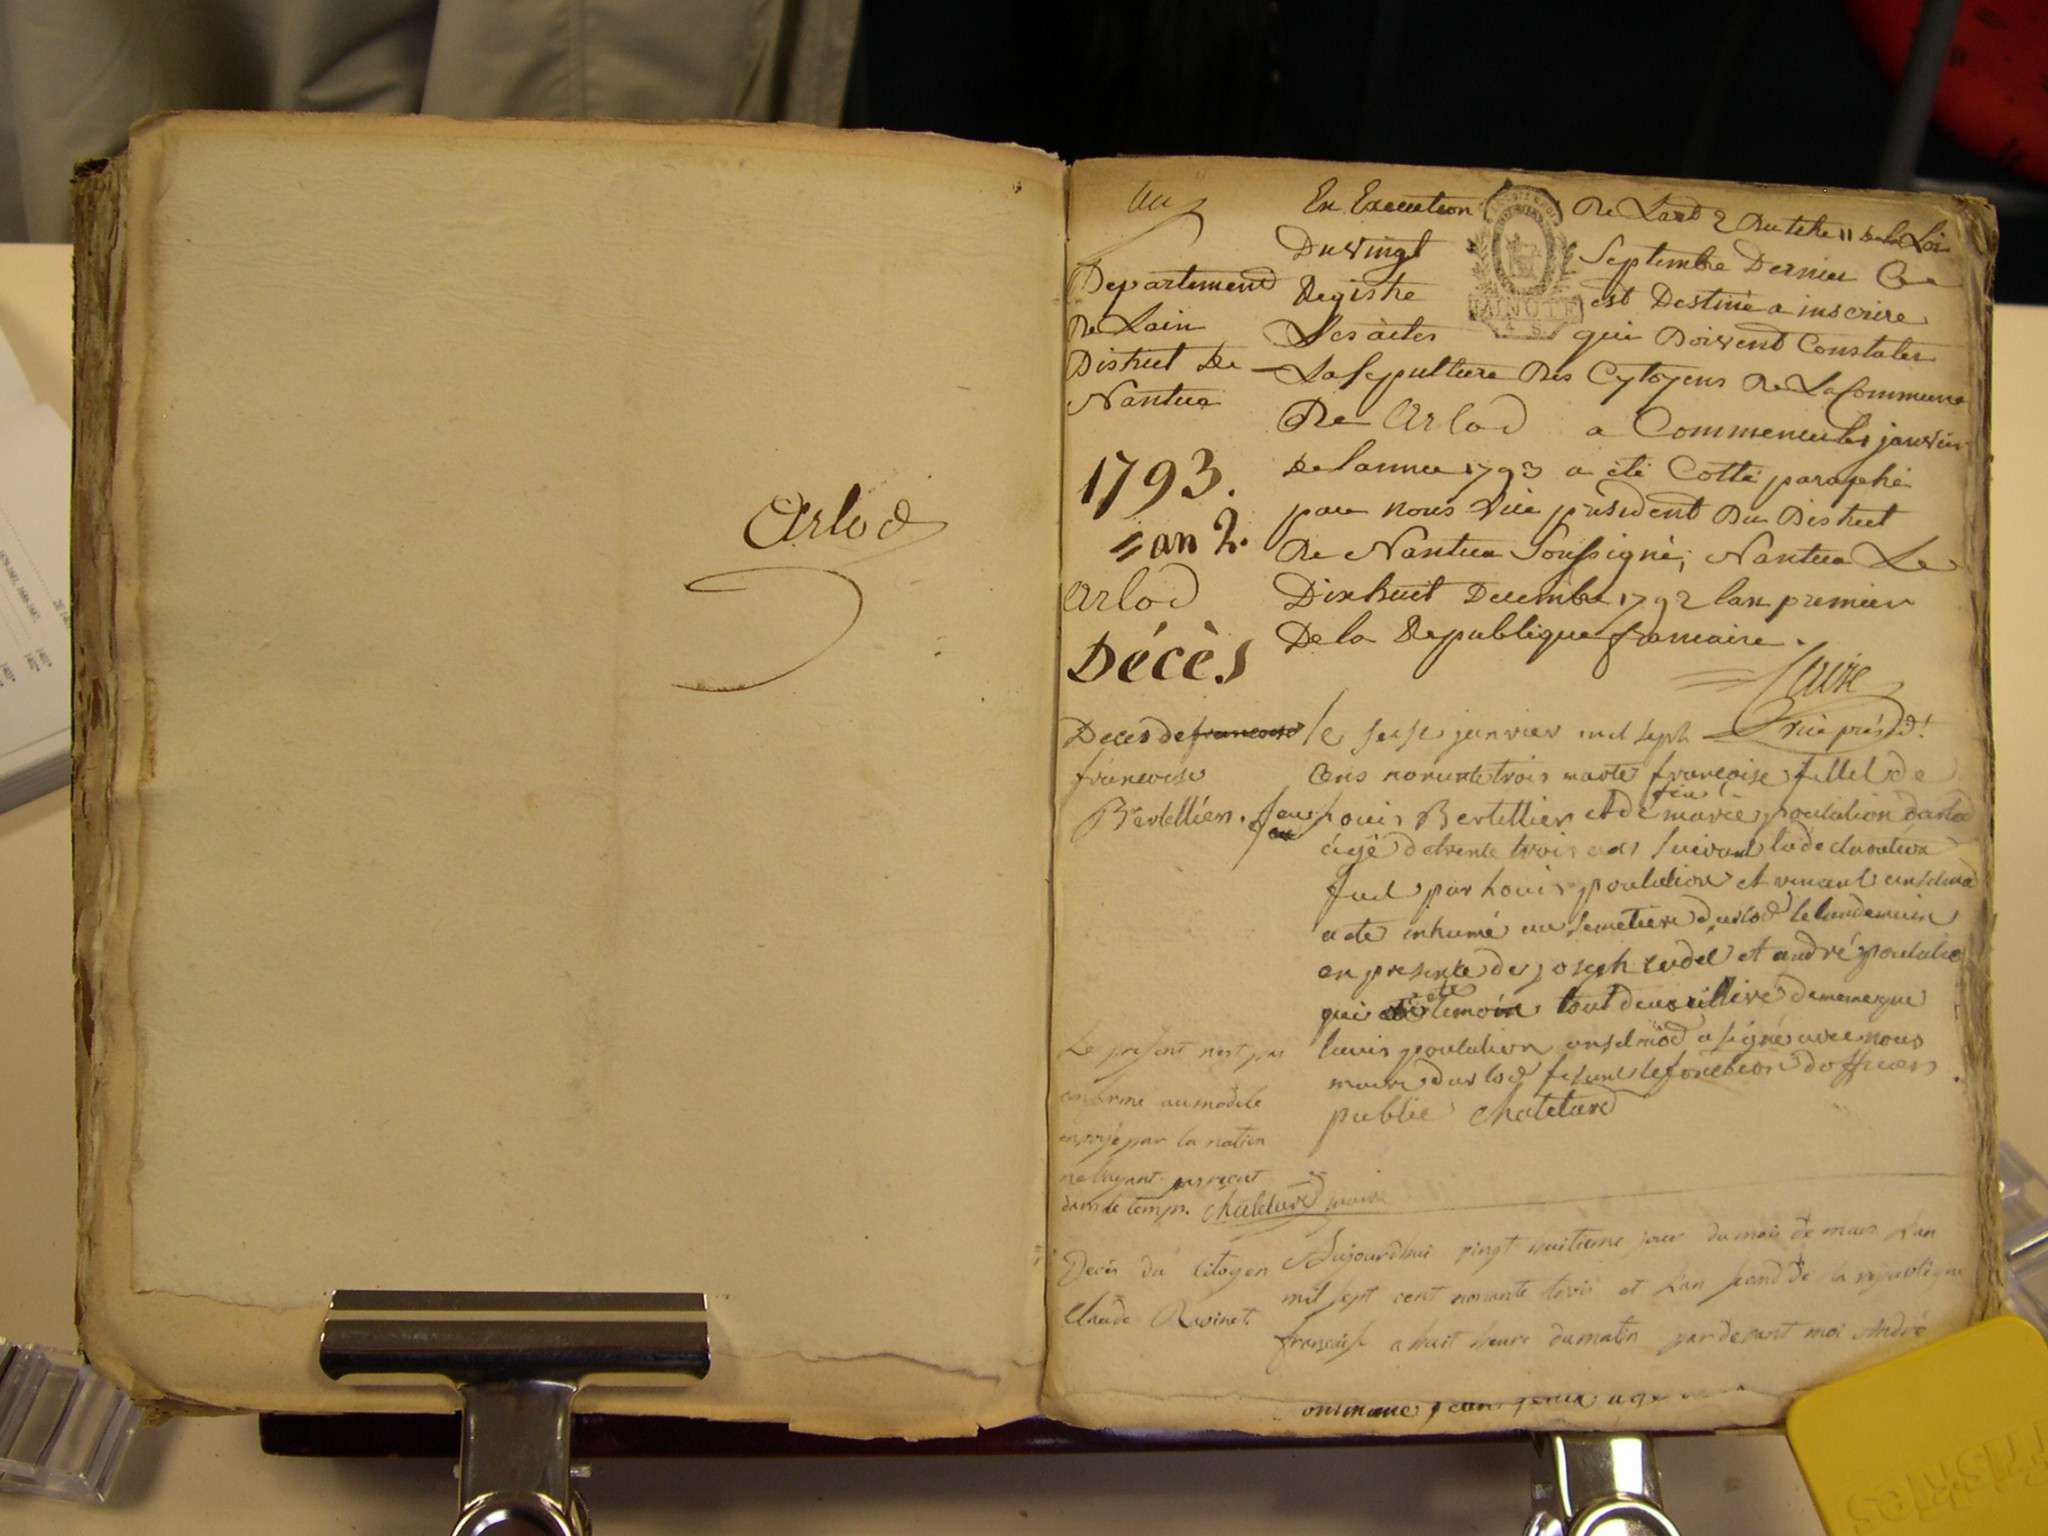 Arlod
En Execution De Lart 2 Du titre 11 de la Loi
Du vingt Septembre Dernier Ce
Registre est Destiné a inscrire
Les actes qui Doivent Constater
La Sepulture Des Cytoyens De La Commune
De Arlod a Commencer le 1 janvier
de lannee 1793 a été Cotté paraphé
par nous Vice president Du District
De Nantua Soussigné, Nantua Le
Dixhuit Decembre 1792 lan premier
De la Republique francaise.
vice présid!
Departement
De Lain
District De
Nantua
1793.
=an 2.
Arlod
Décès
Deces de francoise
francoise
Bertellier.
le seise janvier mil sept
Cens nonante trois marte françoise fille de
feu Louis Bertellier et de feu marie poulalion darlod
âgé de trente trois ans suivant la declaration
fait par Louis poulalion et vincent anselmod
a eté inhumé au semetiere d'arlod le landemain
en presence de joseph rudel et andré poulalion
qui ont eté temoin tout deux illiré de meme que
Louis poulalion anselmod a signé avec nous
maire d'arlod fesant le fonction d'officier
public Chatelard
Le present n'est pas
conforme au modele
envoyé par la nation
ne l'ayant pas reçut
dans le temps. Chatelard maire
Deces du Citoyen
Claude Ravinet
Aujourdhui vingt huitieme jour du mois de mars Lan
mil sept cent nonante trois et Lan second de la republique
francaise a huit heure du matin par devant moi André
MINUTE
4 S.